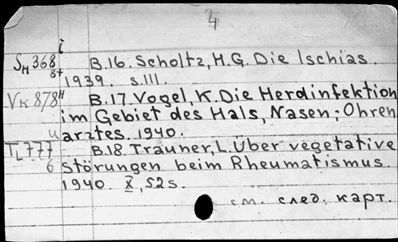 4
i
Sм 368 B.16. Scholtz, H.G. Die Ischias.
8+ 1939. s.III.
Vк 878н B.17. Vogel, K. Die Herdinfektion
im Gebiet des Hals, Nasen; Ohren
u arztes. 1940.
TL 777 B.18. Trauner, L. Über vegetative
6 Störungen beim Rheumatismus.
1940. X, 52 s.
см. след. карт.